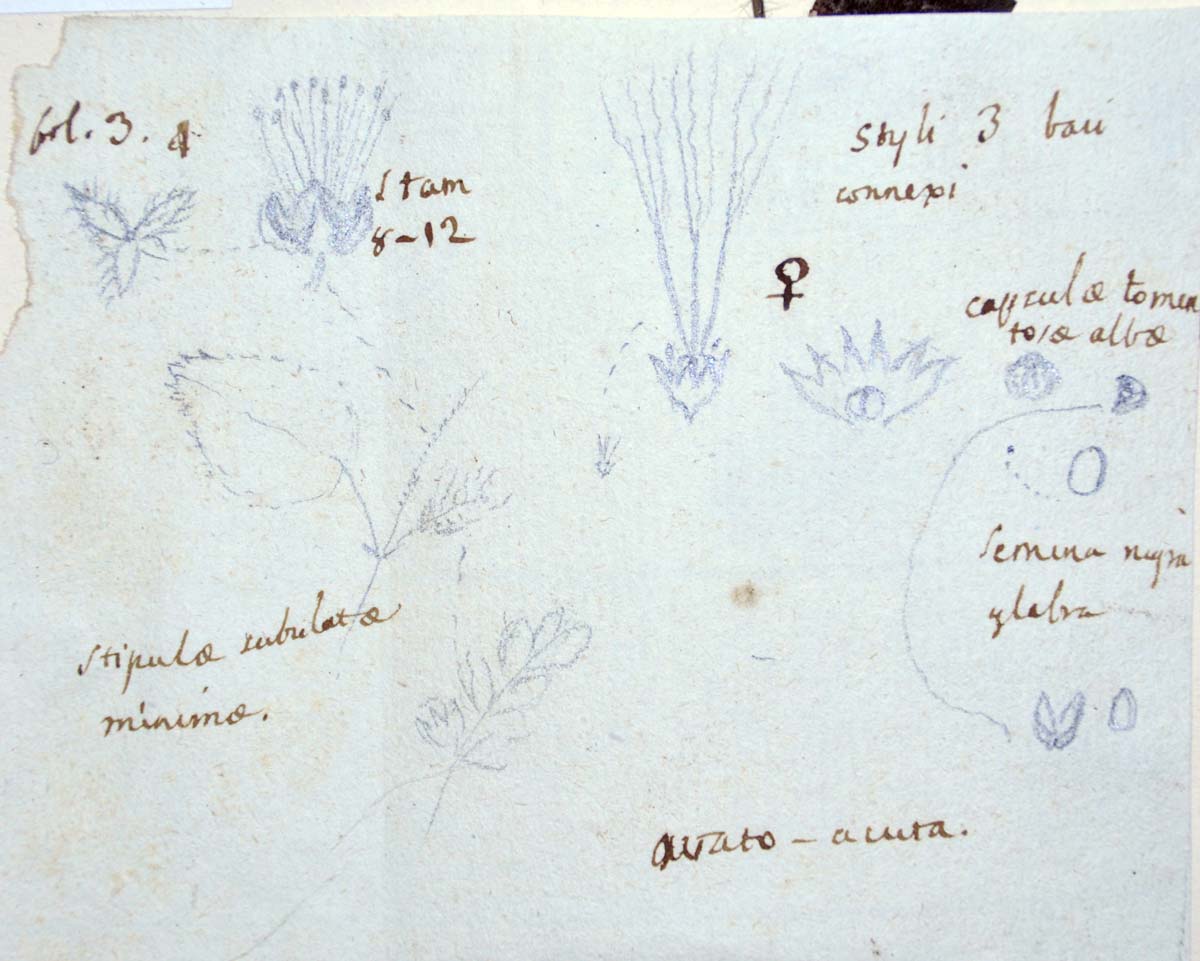 fol. 3.
Stam
8-12
Styli 3 basi
connexi
♀
capsulæ tomen
tosæ albæ
Semina nigra
glabra
Stipulæ subulatæ
minimæ.
ovato - acuta.